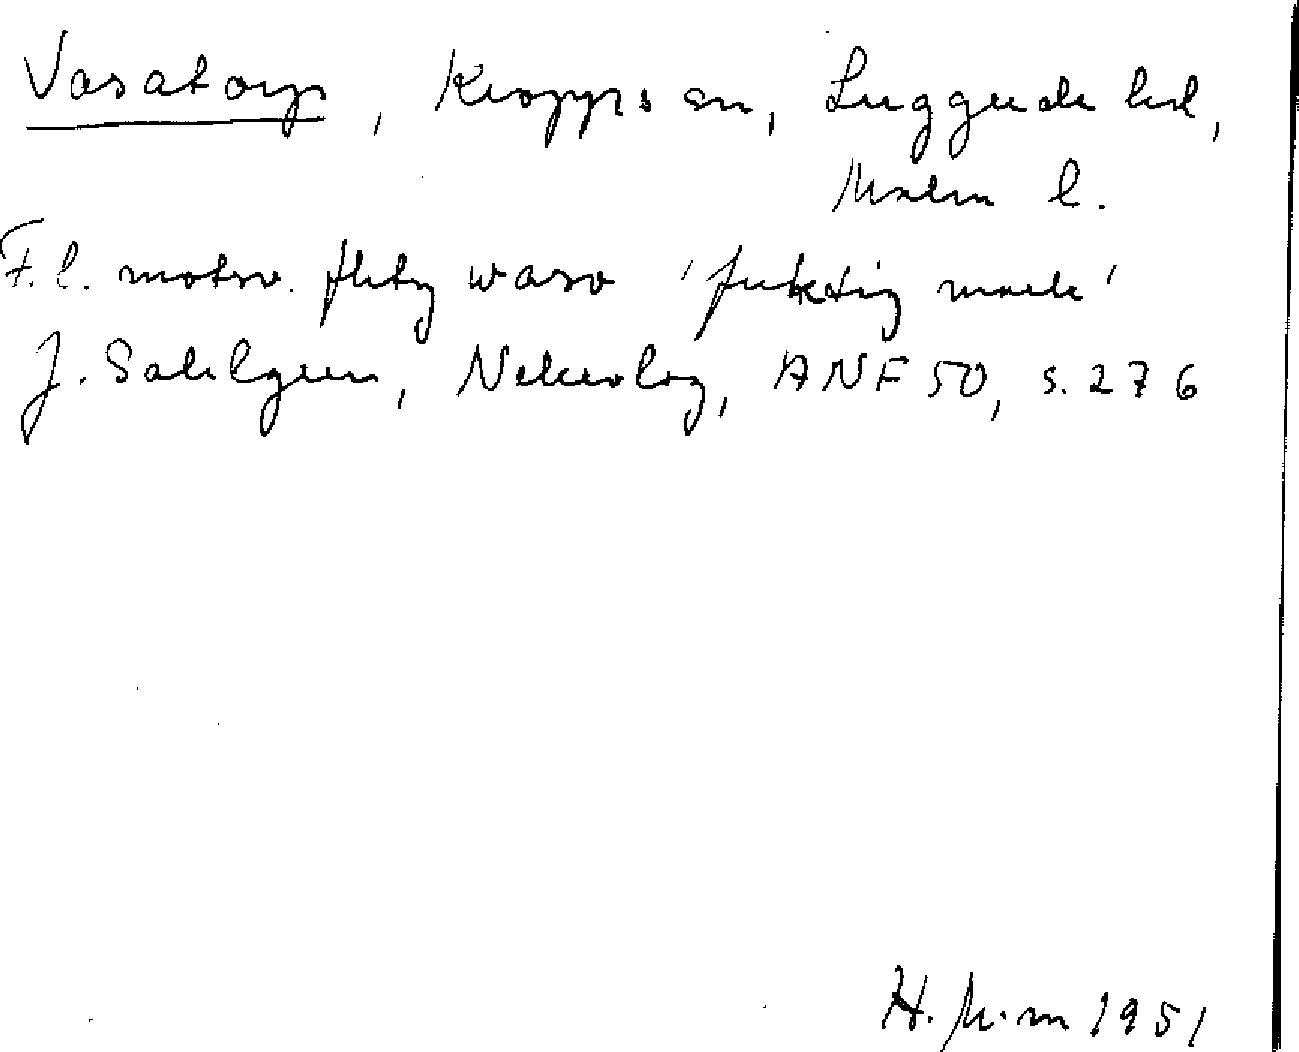 Vasatorp, Kropps sn, Luggude hd,
Malm l.
F.l. motsv. fhty waso 'fuktig mark'
J. Sahlgren, Nekrolog, ANF 50, s. 276
H. M-m 1951